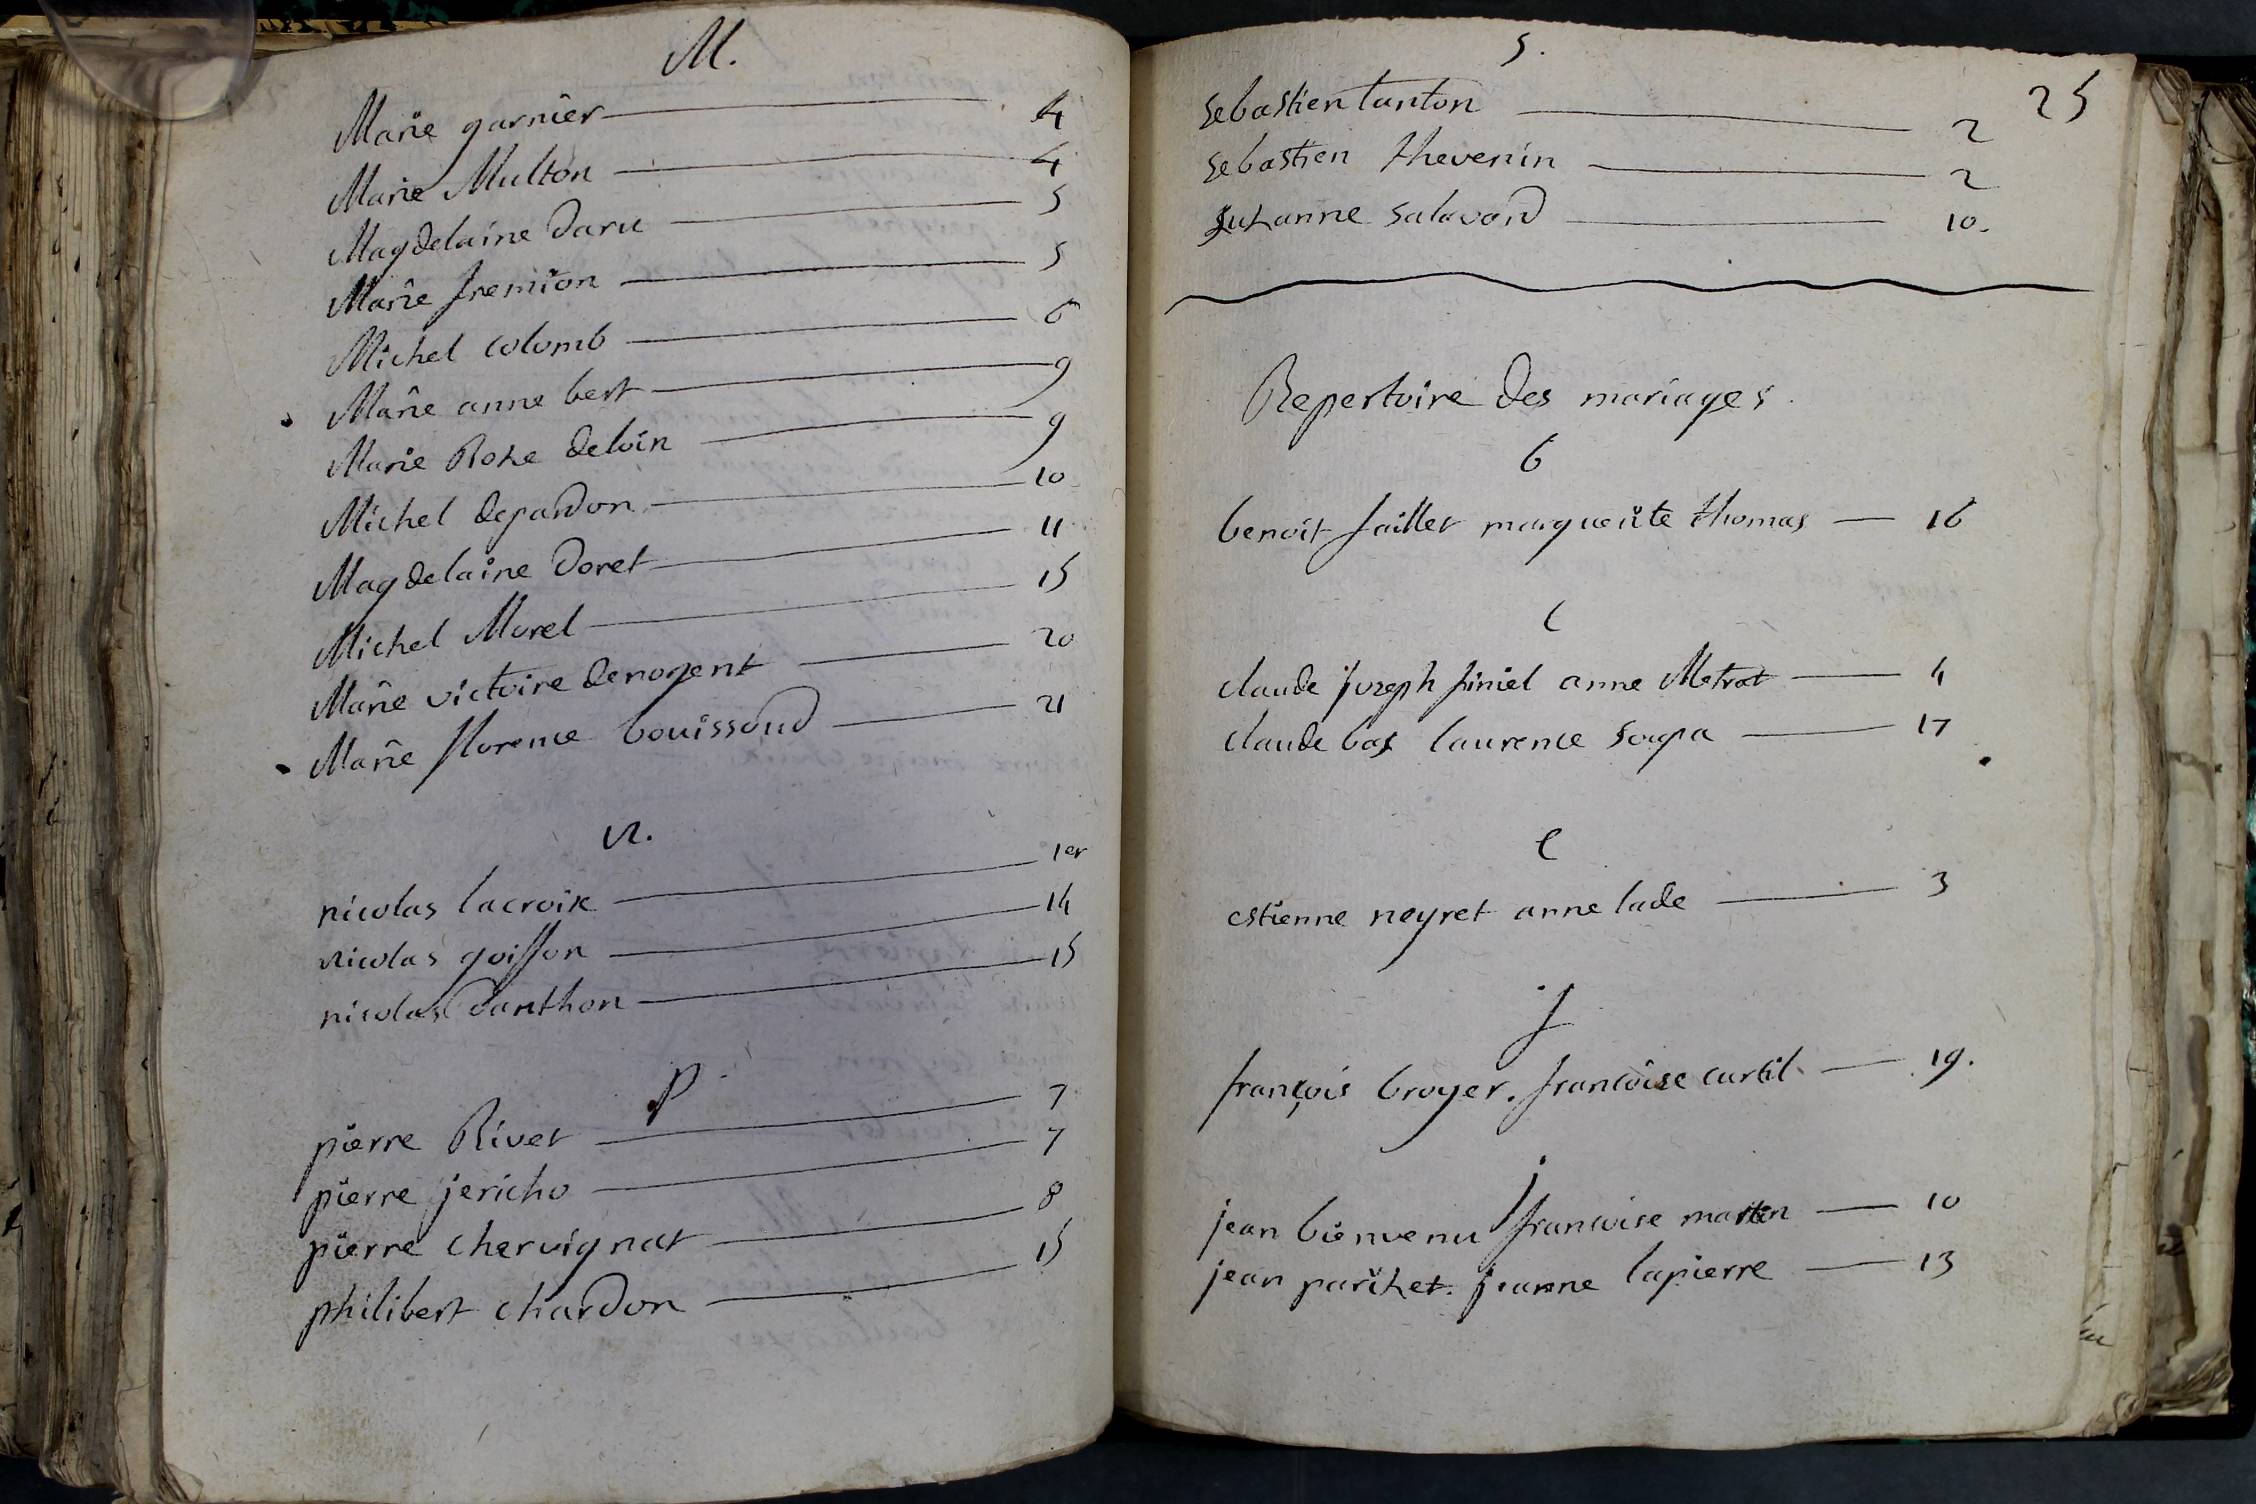 M.
Marie garnier 4
Marie Multon 4
Magdelaine Daru 5
Marie fremion 5
Michel colomb 6
Marie anne bert 9
Marie Roze deloin 9
Michel depardon 10
Magdelaine Doret 11
Michel Morel 15
Marie victoire denogent 20
Marie florence bouissoud 21
n.
nicolas lacroix 1er
nicolas goiffon 14
nicolas danthon 15
p.
pierre Rivet 7
pierre jericho 7
pierre chervignat 8
philibert chardon 15
25
S.
Sebastien tanton 2
Sebastien thevenin 2
Suzanne Salavard 10.
Repertoire des mariages.
b
benoit faillet marguerite thomas 16
C
claude joseph finiel anne Metrat 4
claude bas laurence soupa 17
e
estienne neyret anne lade 3
f
françois broyer. francoise curtil 19.
j
jean bienvenu francoise martin 10
jean parichet. jeanne lapierre 13